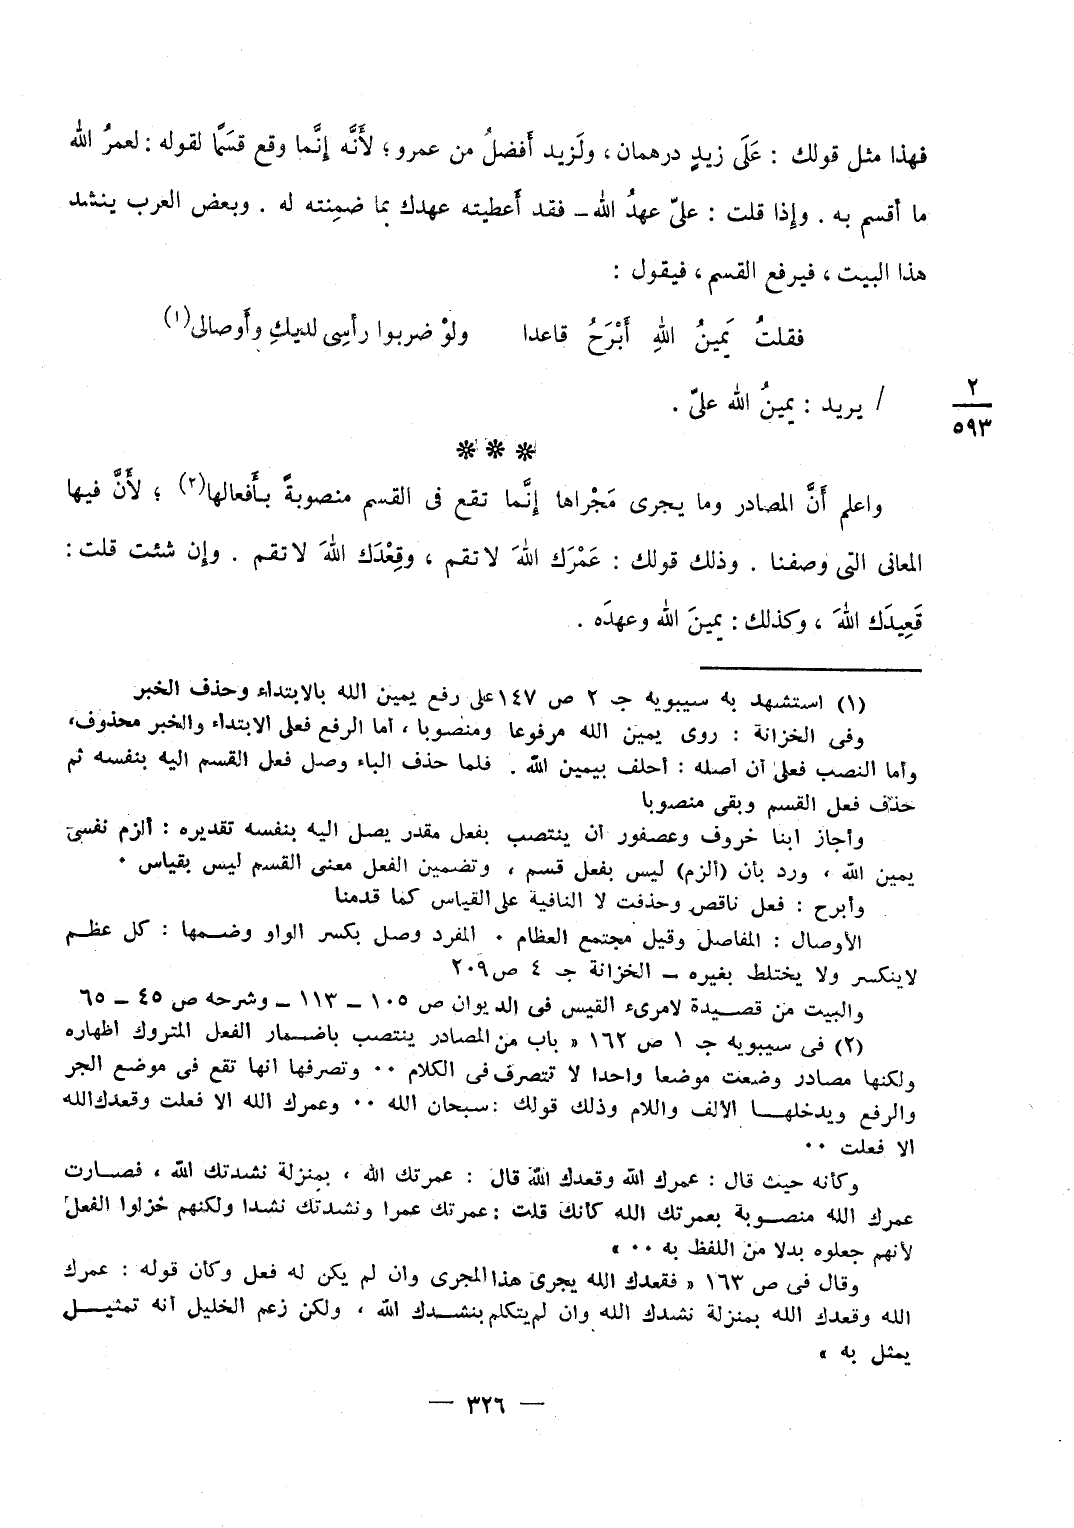 فهذا مثل قولك : عَلَى زيدٍ درهمان، ولَزيد أَفضلُ من عمرو؛ لأَنَّه إنَّما وقع قسَمًا لقوله : لعمرُ الله
ما أقسم به . وإذا قلت : علىّ عهدُ الله ــ فقد أَعطيته عهدك بما ضمِنته له . وبعض العرب ينشد
هذا البيت ، فيرفع القسم ، فيقول :
فقلتُ يَمينُ اللهِ أَبْرَحُ قاعدا ولوْ ضربوا رأسِى لديكِ وأَوصالى(١)
/ يريد : يمينُ الله علىّ .
٢
٥٩٣
***
واعلم أَنَّ المصادر وما يجرى مَجْراها إنَّما تقع فى القسم منصوبةً بأَفعالها(٢) ؛ لأَنَّ فيها
المعانى التى وصفنا . وذلك قولك : عَمْرَك اللهَ لا تقم ، وقِعْدَك اللهَ لا تقم . وإن شئت قلت :
قَعِيدَك اللهَ ، وكذلك : يمينَ الله وعهدَه .
(١) استشهد به سيبويه جـ ٢ ص ١٤٧ على رفع يمين الله بالابتداء وحذف الخبر
وفى الخزانة : روى يمين الله مرفوعا ومنصوبا ، أما الرفع فعلى الابتداء والخبر محذوف،
وأما النصب فعلى أن أصله : أحلف بيمين الله . فلما حذف الباء وصل فعل القسم اليه بنفسه ثم
حذف فعل القسم وبقى منصوبا
وأجاز ابنا خروف وعصفور أن ينتصب بفعل مقدر يصل اليه بنفسه تقديره : ألزم نفسى
يمين الله ، ورد بأن (ألزم) ليس بفعل قسم ، وتضمين الفعل معنى القسم ليس بقياس ٠
وأبرح : فعل ناقص وحذفت لا النافية على القياس كما قدمنا
الأوصال : المفاصل وقيل مجتمع العظام ٠ المفرد وصل بكسر الواو وضمها : كل عظم
لاينكسر ولا يختلط بغيره ــ الخزانة جـ ٤ ص ٢٠٩
والبيت من قصيدة لامرىء القيس فى الديوان ص ١٠٥ ــ ١١٣ ــ وشرحه ص ٤٥ ــ ٦٥
(٢) فى سيبويه جـ ١ ص ١٦٢ « باب من المصادر ينتصب باضمار الفعل المتروك اظهاره
ولكنها مصادر وضعت موضعا واحدا لا تتصرف فى الكلام ٠٠ وتصرفها انها تقع فى موضع الجر
والرفع ويدخلها الألف واللام وذلك قولك : سبحان الله ٠٠ وعمرك الله الا فعلت وقعدك الله
الا فعلت ٠٠
وكأنه حيث قال : عمرك الله وقعدك الله قال : عمرتك الله ، بمنزلة نشدتك الله ، فصارت
عمرك الله منصوبة بعمرتك الله كأنك قلت : عمرتك عمرا ونشدتك نشدا ولكنهم خُزلوا الفعل
لأنهم جعلوه بدلا من اللفظ به ٠٠ »
وقال فى ص ١٦٣ « فقعدك الله يجرى هذا المجرى وان لم يكن له فعل وكأن قوله : عمرك
الله وقعدك الله بمنزلة نشدك الله وان لم يتكلم بنشدك الله ، ولكن زعم الخليل أنه تمثيل
يمثل به »
— ٣٢٦ —